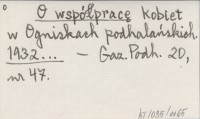 O współpracę kobiet
w Ogniskach podhalańskich.
1932... – Gaz. Podh. 20,
nr 47.